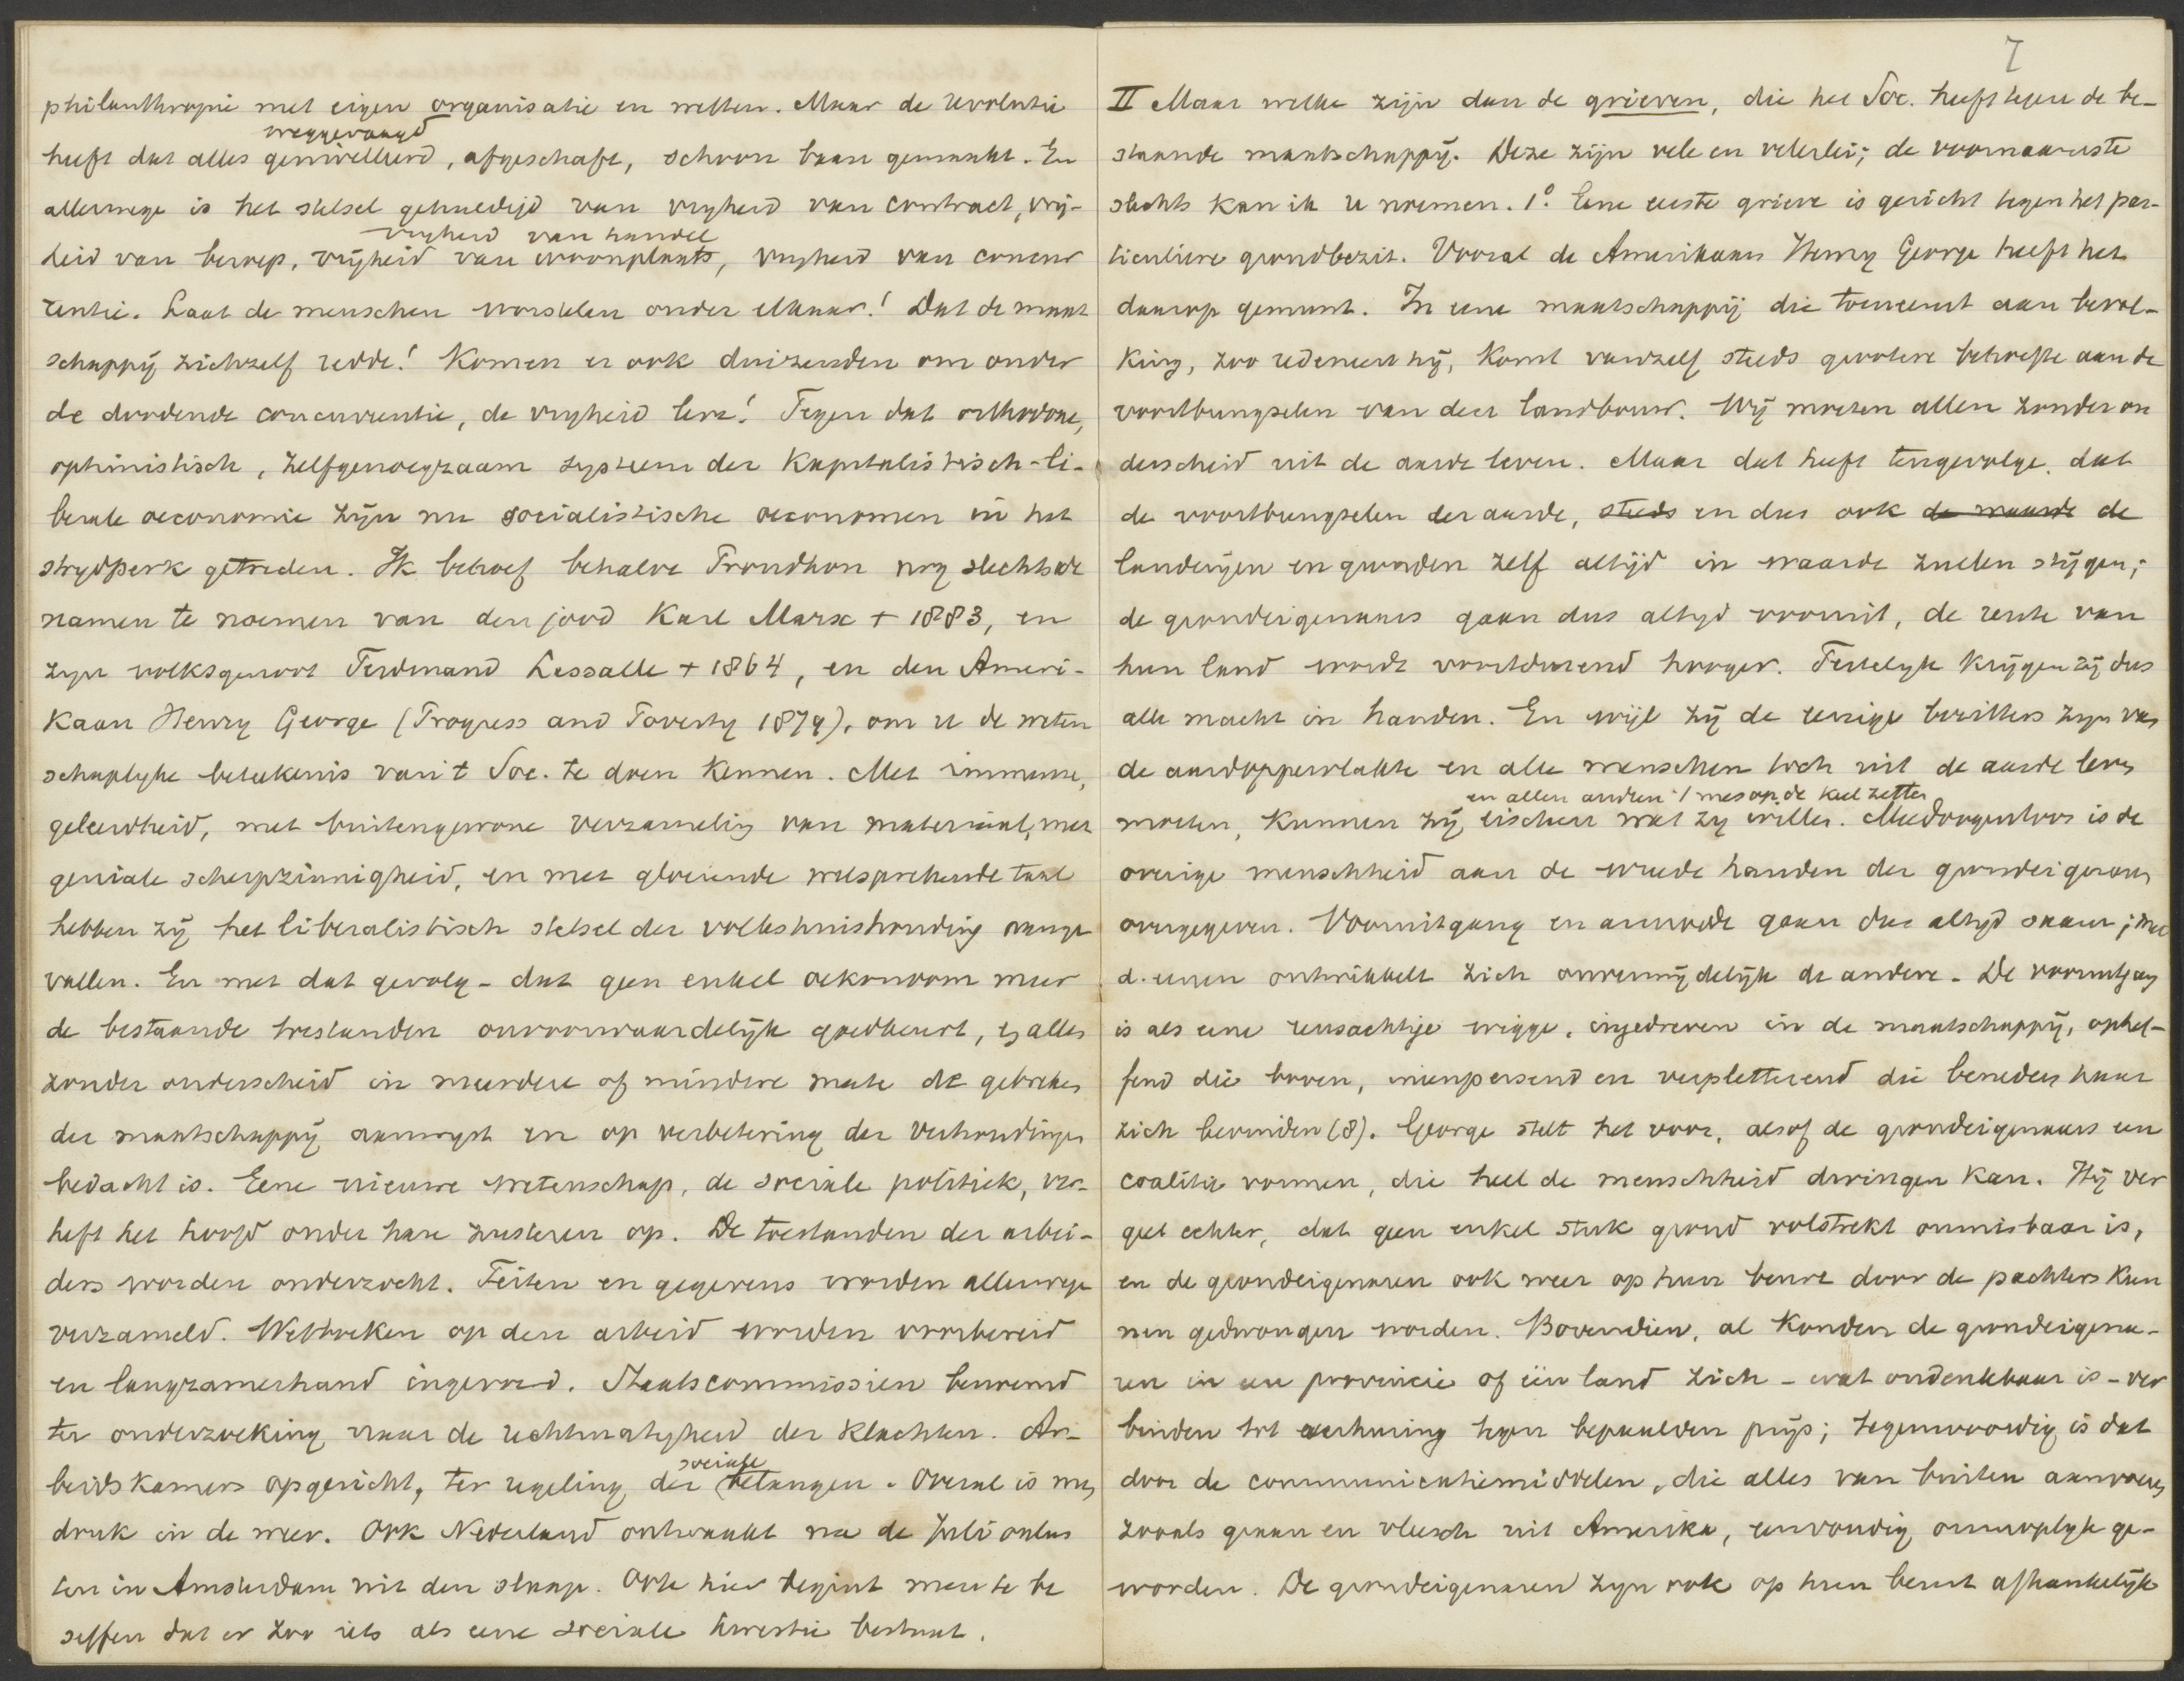 philanthropie met eigen organisatie en wetten. Maar de revolutie
weggevaagd
heeft dat alles genivelleerd, afgeschaft, schoon baan gemaakt. En
allerwege is het stelsel gehuldigd van vryheid van contract, vrij-
vryheid van handel
heid van beroep, vrijheid van woonplaats, vryheid van concur
rentie. Laat de menschen worstelen onder elkaar! Dat de maat
schappij zichzelf redde! Komen er ook duizenden om onder
de doodende concurrentie, de vryheid leve! Tegen dat orthodoxe,
optimistisch, zelfgenoegzaam systeem der Kapitalistisch-li-
berale oeconomie zijn nu socialistische oeconomen in het
strydperk getreden. Ik behoef behalve Proudhon nog slechts de
namen te noemen van den jood Karl Marx + 1883, en
zyn volksgenoot Ferdinand Lassalle + 1864, en den Ameri-
kaan Henry George (Progress and Poverty 1879), om u de weten
schaplyke beteekenis van 't Soc. te doen kennen. Met immense,
geleerdheid, met buitengewone verzameling van materiaal, met
geniale scherpzinnigheid, en met gloeiende welsprekende taal
hebben zij het liberalistisch stelsel der volkshuishouding aange
vallen. En met dat gevolg - dat geen enkel oekonoom meer
de bestaande toestanden onvoorwaardelijk goedkeurt, en allen
zonder onderscheid in meerdere of mindere mate de gebreken
der maatschappij aanwyst en op verbetering der verhoudingen
bedacht is. Eene nieuwe wetenschap, de sociale politiek, ver-
heft het hoofd onder hare zusteren op. De toestanden der arbei-
ders worden onderzocht. Feiten en gegevens worden allerwege
verzameld. Wetboeken op den arbeid worden voorbereid
en langzamerhand ingevoerd. Staatscommissien benoemd
ter onderzoeking naar de rechtmatigheid der klachten. Ar-
sociale
beidskamers opgericht, ter regeling der belangen. Overal is men
druk in de weer. Ook Nederland ontwaakt na de Juli onlus
ten in Amsterdam uit den slaap. Ook hier begint men te be
seffen dat er zoo iets als eene sociale kwestie bestaat.
7
II Maar welke zijn dan de grieven, die het Soc. heeft tegen de be-
staande maatschappij. Deze zijn vele en velerlei; de voornaamste
slechts kan ik u noemen. 1o. Eene eerste grieve is gericht tegen het par-
ticuliere grondbezit. Vooral de Amerikaan Henry George heeft het
daarop gemunt. In eene maatschappij die toeneemt aan bevol-
king, zoo redeneert hij, komt vanzelf steeds grootere behoefte aan de
voortbrengselen van den landbouw. Wij moeten allen zonder on
derscheid uit de aarde leven. Maar dat heeft tengevolge, dat
de voortbrengselen der aarde, steeds en dus ook de waarde de
landerijen en gronden zelf altijd in waarde zullen stijgen;
de grondeigenaars gaan dus altyd vooruit, de rente van
hun land wordt voortdurend hooger. Feitelyk krijgen zij dus
alle macht in handen. En wijl zij de eenige bezitters zyn van
de aardoppervlakte en alle menschen toch uit de aarde leven
en allen anderen 't mes op de keel zetten
moeten, kunnen zij eischen wat zy willen. Meedoogenloos is de
overige menschheid aan de wreede handen der grondeigenaars
overgegeven. Vooruitgang en armoede gaan dus altyd saam; met
d. eenen ontwikkelt zich onvermijdelijk de andere. De vooruitgang
is als eene reusachtige wigge, ingedreven in de maatschappij, ophef-
fend die boven, ineenpersend en verpletterend die beneden haar
zich bevinden (8). George stelt het voor, alsof de grondeigenaars een
coalitie vormen, die heel de menschheid dwingen kan. Hij ver
geet echter, dat geen enkel stuk grond volstrekt onmisbaar is,
en de grondeigenaren ook weer op hun beurt door de pachters kun
nen gedwongen worden. Bovendien, al konden de grondeigena-
ren in een provincie of één land zich - wat ondenkbaar is - ver
binden tot verhuring tegen bepaalden prijs; tegenwoordig is dat
door de communicatiemiddelen, die alles van buiten aanvoeren
zooals graan en vleesch uit Amerika, eenvoudig onmogelyk ge-
worden. De grondeigenaren zyn ook op hun beurt afhankelijk